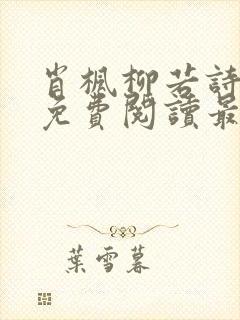 肖楓柳若詩
免費閱讀最
葉雪暮